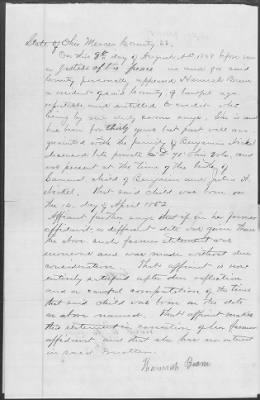 State of Ohio Mercer County, SS.
On this 9th day of August, A.D. 1889 before me
a Justice of the Peace in and for said
County personally appeared Hannah Beem
a resident of said County of lawful age
reputable and entitled to credit who
being by me duly sworn says. She is and
has been for thirty years last past well ac-
quainted with the family of Benjamin
deceased late private Co.
was present at the time of the birth of
child of Benjamin and
That said child was born on
the 16 day of April 1882
Affiant further says that if in her former
affidavit a different date was given than
the above such former statement was
erroneous and was made without due
consideration. That affiant is now
entirely satisfied after due reflection
and a careful computation of the time
that said child was born on the date
as above named. That affiant makes
this statement in correction of her former
affidavit and that she has no interest
in said matter.
Hannah Beem